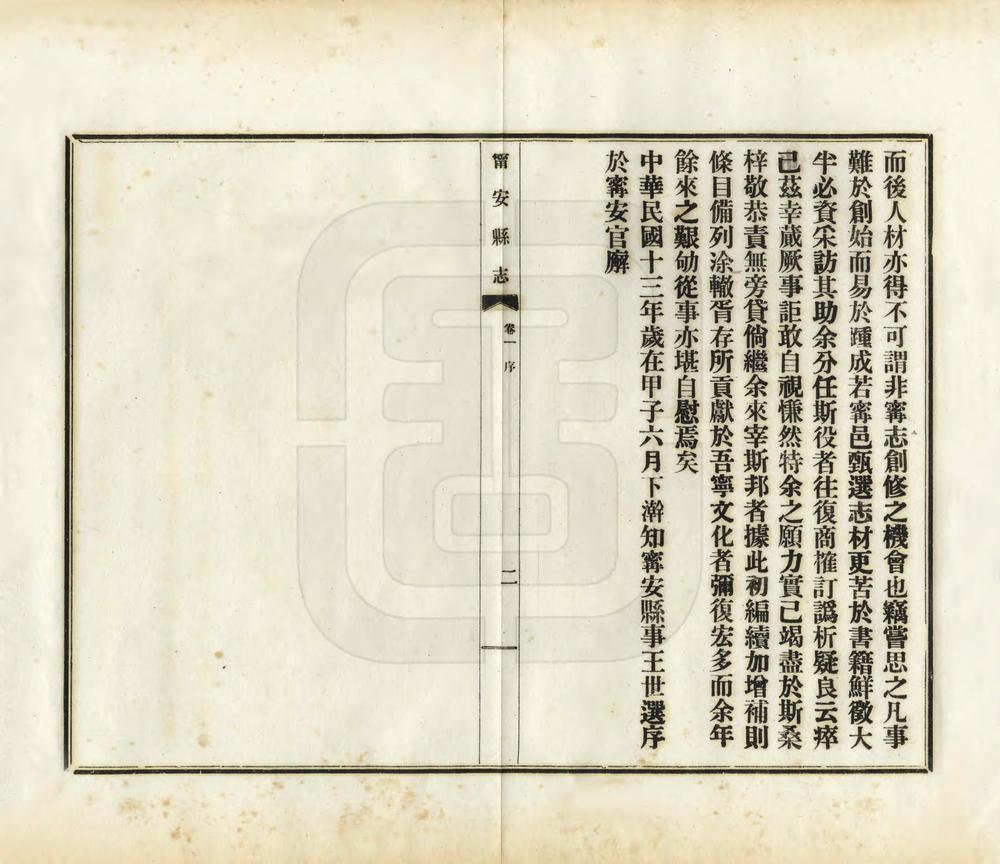 而後人材亦得不可謂非寗志創修之機會也竊嘗思之凡事
難於創始而易於踵成若寗邑甄選志材更苦於書籍鮮徵大
半必資采訪其助余分任斯役者往復商榷訂譌析疑良云瘁
已茲幸蕆厥事詎敢自視慊然特余之願力實已竭盡於斯桑
梓敬恭責無旁貸倘繼余來宰斯邦者據此初編續加增補則
條目備列涂轍胥存所貢獻於吾寧文化者彌復宏多而余年
餘來之艱劬從事亦堪自慰焉矣
中華民國十三年歲在甲子六月下澣知寗安縣事王世選序
於寗安官廨
甯安縣志
卷一 序
二